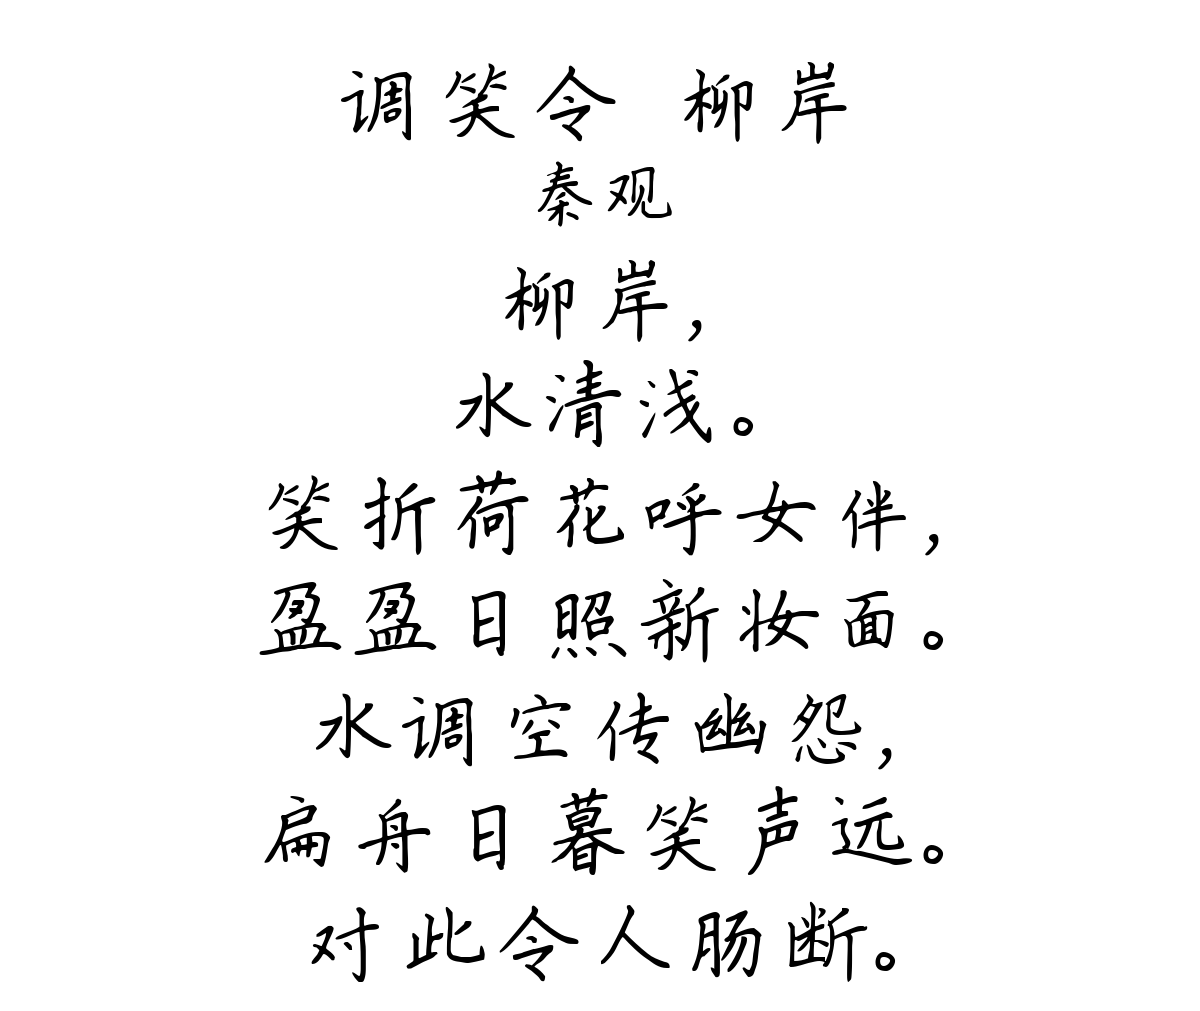 调笑令 柳岸
秦观
柳岸，
水清浅。
笑折荷花呼女伴，
盈盈日照新妆面。
水调空传幽怨，
扁舟日暮笑声远。
对此令人肠断。